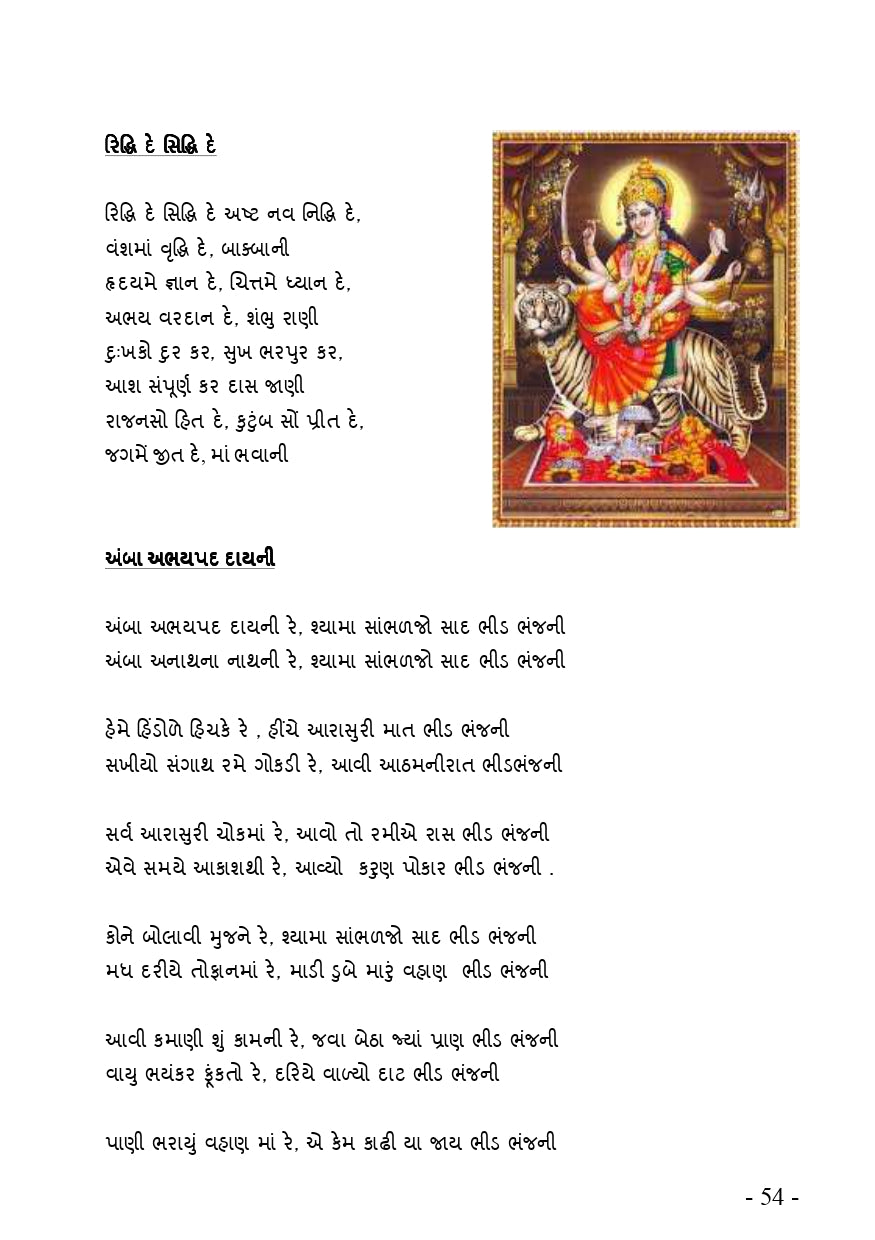 રિદ્ધિ દે સિદ્ધિ દે
રિદ્ધિ દે સિદ્ધિ દે અષ્ટ નવ નિદ્ધિ દે,
વંશમાં વૃદ્ધિ દે, બાક્બાની
હૃદયમે જ્ઞાન દે, ચિત્તમે ધ્યાન દે,
અભય વરદાન દે, શંભુ રાણી
દુઃખકો દુર કર, સુખ ભરપુર કર,
આશ સંપૂર્ણ કર દાસ જાણી
રાજનસો હિત દે, કુટુંબ સોં પ્રીત દે,
જગમેં જીત દે, માં ભવાની
અંબા અભયપદ દાયની
અંબા અભયપદ દાયની રે, શ્યામા સાંભળજો સાદ ભીડ ભંજની
અંબા અનાથના નાથની રે, શ્યામા સાંભળજો સાદ ભીડ ભંજની
હેમે હિંડોળે હિચકે રે , હીંચે આરાસુરી માત ભીડ ભંજની
સખીયો સંગાથ રમે ગોકડી રે, આવી આઠમનીરાત ભીડભંજની
સર્વ આરાસુરી ચોકમાં રે, આવો તો રમીએ રાસ ભીડ ભંજની
એવે સમયે આકાશથી રે, આવ્યો કરુણ પોકાર ભીડ ભંજની .
કોને બોલાવી મુજને રે, શ્યામા સાંભળજો સાદ ભીડ ભંજની
મધ દરીયે તોફાનમાં રે, માડી ડુબે મારું વહાણ ભીડ ભંજની
આવી કમાણી શું કામની રે, જવા બેઠા જ્યાં પ્રાણ ભીડ ભંજની
વાયુ ભયંકર ફૂંકતો રે, દરિયે વાળ્યો દાટ ભીડ ભંજની
પાણી ભરાયું વહાણ માં રે, એ કેમ કાઢી યા જાય ભીડ ભંજની
- 54 -